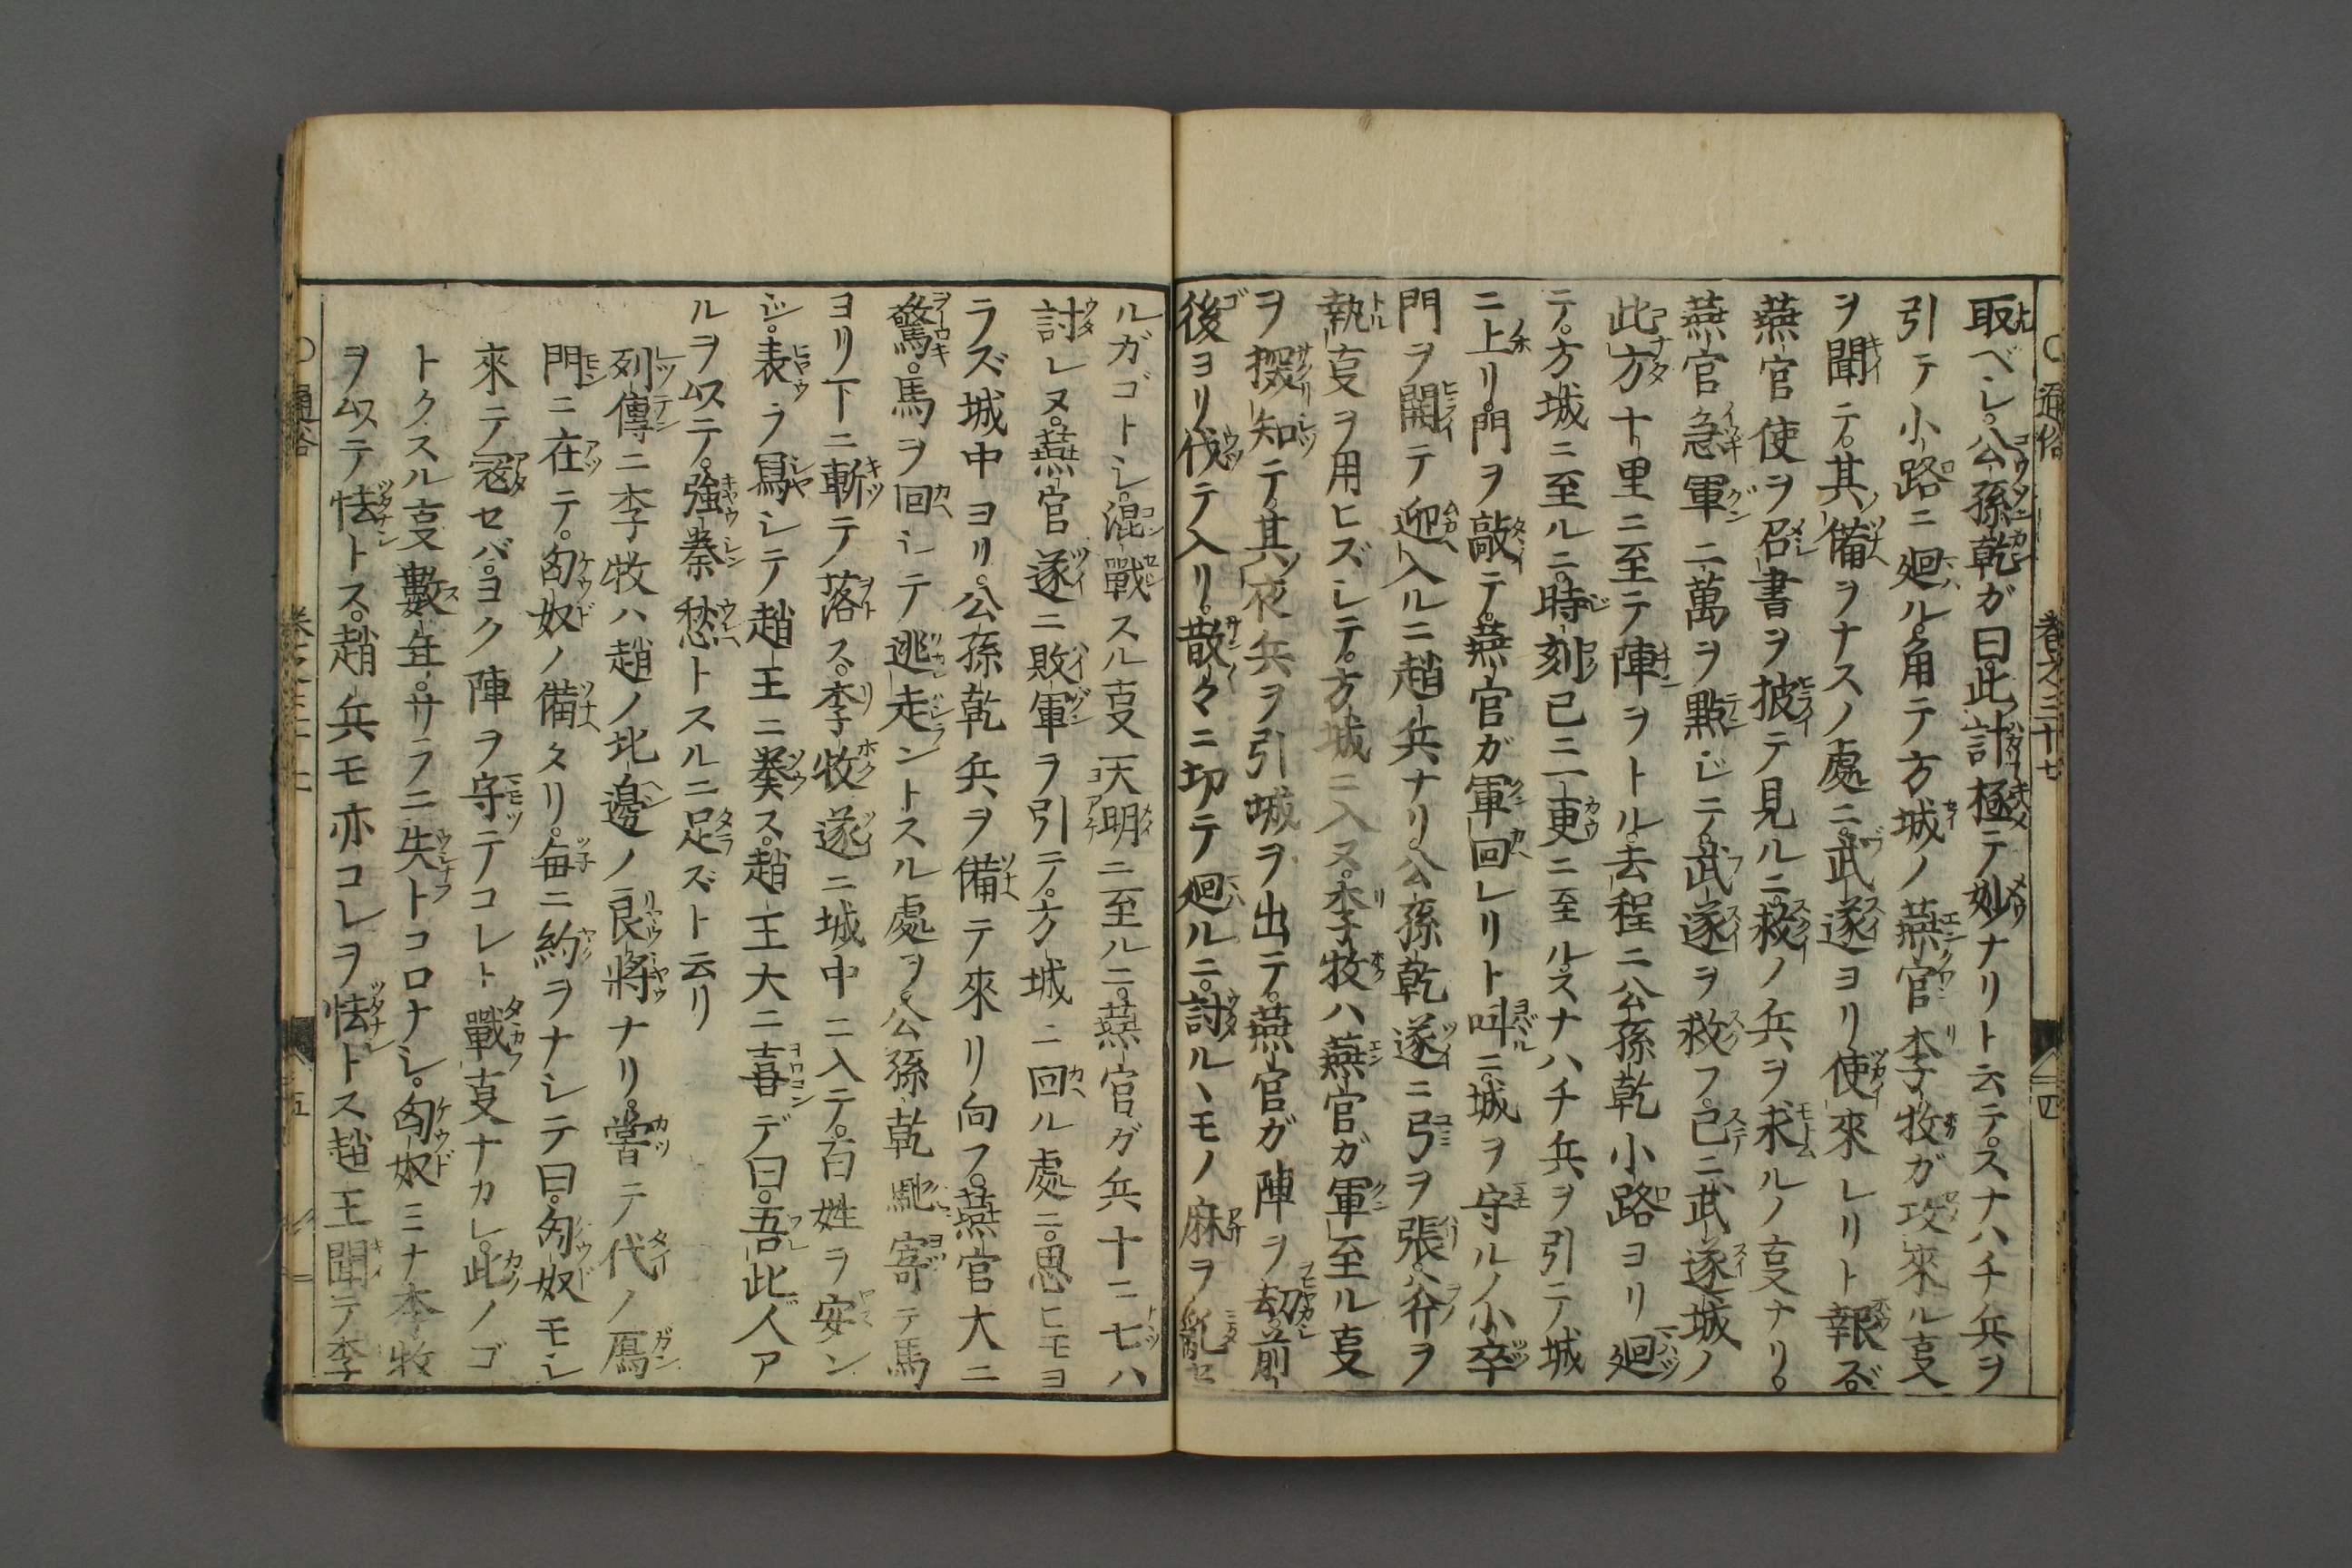 ○通俗 卷之三十七 四
取ベシ。公孫乾ガ曰。此計極テ妙ナリト云テ。スナハチ兵ヲ
引テ小路ニ廻ル。角テ方城ノ燕官李牧ガ攻來ル㕝
ヲ聞テ。其備ヲナスノ處ニ。武遂ヨリ使來レリト報ズ。
燕官使ヲ召書ヲ披テ見ルニ。救ノ兵ヲ求ルノ㕝ナリ。
燕官急軍二萬ヲ點ジテ。武遂ヲ救フ。已ニ武遂城ノ
此方十里ニ至テ陣ヲトル。去程ニ公孫乾小路ヨリ廻
テ。方城ニ至ルニ。時刻已ニ一更ニ至ル。スナハチ兵ヲ引テ城
ニ上リ。門ヲ敲テ。燕官ガ軍回レリト叫ニ。城ヲ守ルノ小卒
門ヲ開テ迎入ルニ趙兵ナリ。公孫乾遂ニ弓ヲ張。箭ヲ
執㕝ヲ用ヒズシテ。方城ニ入ヌ。李牧ハ燕官ガ軍至ル㕝
ヲ探知テ。其夜兵ヲ引城ヲ出テ。燕官ガ陣ヲ劫。前
後ヨリ伐テ入リ。散々ニ切テ廻ルニ。討ルヽモノ麻ヲ亂セ
ルガゴトシ。混戰スル㕝天明ニ至ルニ。燕官ガ兵十ニ七ハ
討レヌ。燕官遂ニ敗軍ヲ引テ。方城ニ回ル處ニ。思ヒモヨ
ラズ城中ヨリ。公孫乾兵ヲ備テ來リ向フ。燕官大ニ
驚。馬ヲ回シテ逃走ントスル處ヲ。公孫乾馳寄テ馬
ヨリ下ニ斬テ落ス。李牧遂ニ城中ニ入テ。百姓ヲ安ン
ジ。表ヲ寫シテ趙王ニ奏ス。趙王大ニ喜デ曰。吾此人ア
ルヲ以テ。強秦愁トスルニ足ズト云リ
列傳ニ李牧ハ趙ノ北邊ノ良將ナリ。嘗テ代ノ鴈
門ニ在テ。匈奴ノ備タリ。毎ニ約ヲナシテ曰。匈奴モシ
來テ冦セバ。ヨク陣ヲ守テコレト戰㕝ナカレ。此ノゴ
トクスル㕝數年。サラニ失トコロナシ。匈奴ミナ李牧
ヲ以テ怯トス。趙兵モ亦コレヲ怯トス趙王聞テ李
○通俗 五